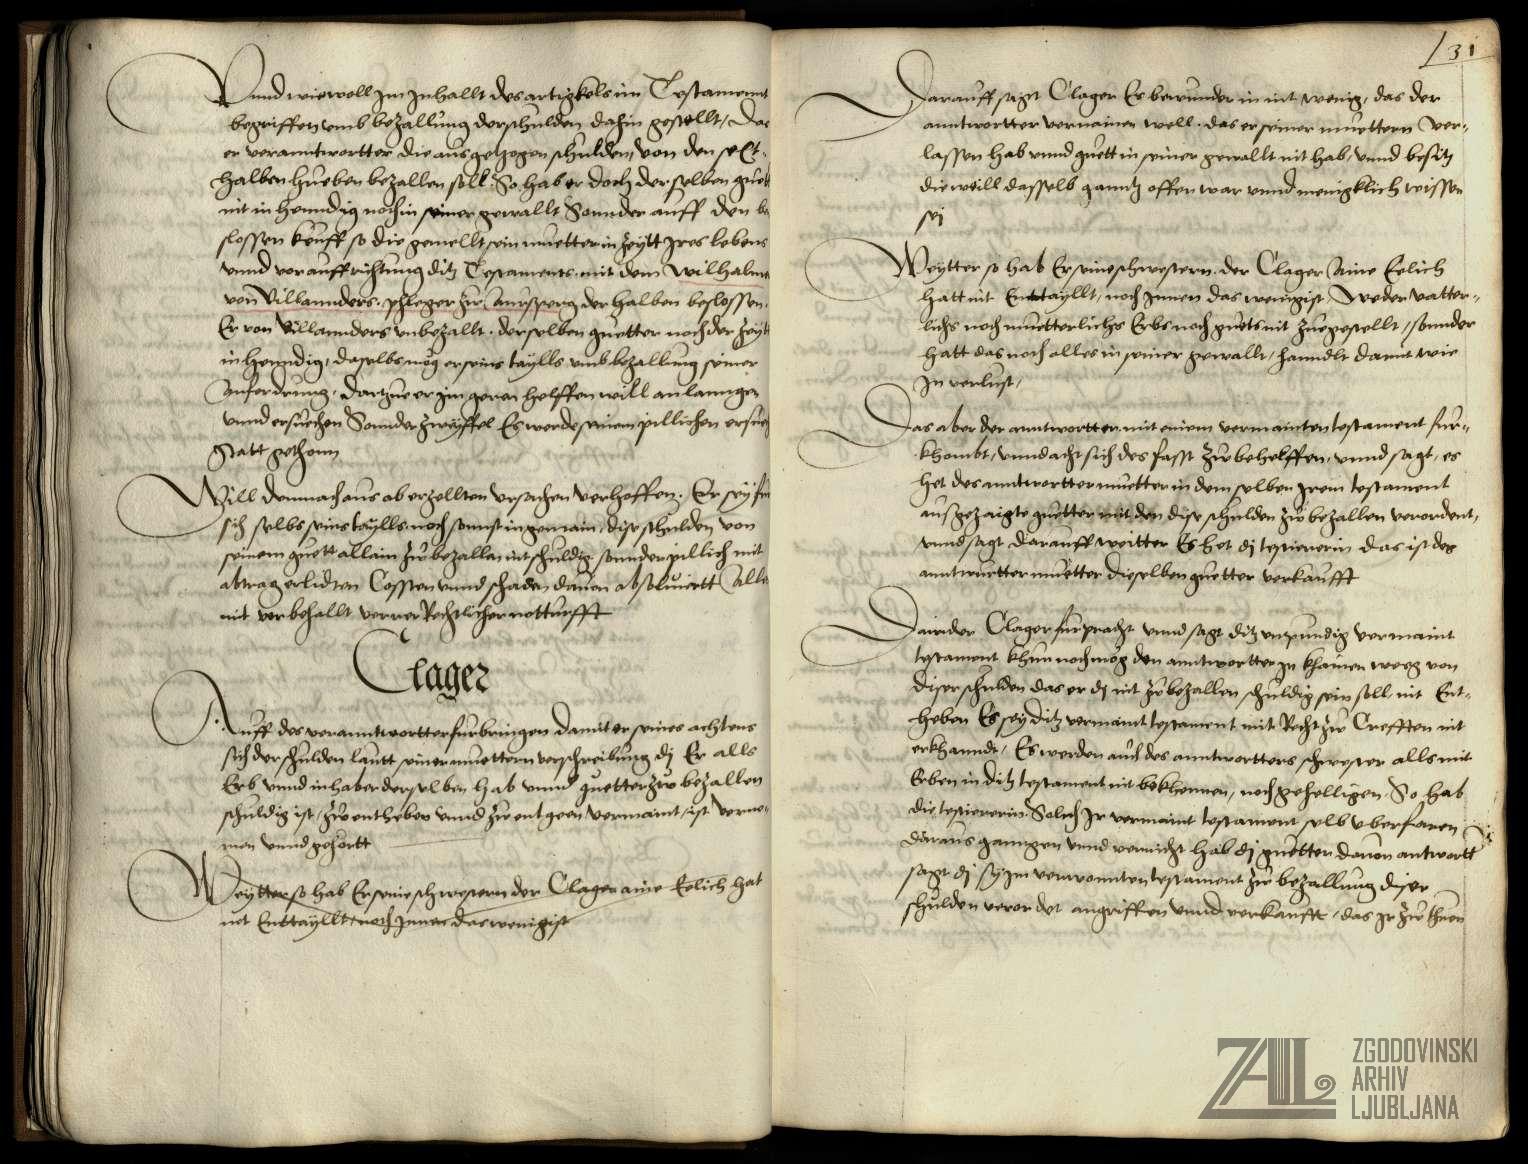 Vnnd wiewoll Im Inhallt des artigkels im Testamennt
begriffen vmb bezallung der schulden dahin gestellt, Das
er verantwortter die ausgezogen schulden, von den sext-
halben hueben bezallen söll. So hab er doch derselben guett
nit in henndig noch in seiner gewallt Sonnder auff den be
slossen keuff so die gemellt sein muetter in zeytt Ires lebens
vnnd vor auffrichtung ditz Testaments. mit dem Wilhalm
von Villannders. phleger zw der halben beslossen.
Er von Villannders vnbezallt. derselben guetter noch der zeytt
in henndig, daselbs mög er seins taylls vmb bezallung seiner
Anfordrung. dartzue er im geren helffen will anlanngen
vnnd ersuechen Sonnder zweyffel Es werde seinem pillichen ersuech
statt gethonn
Will demnach aus ab erzellten vrsachen verhoffen. Er sey fur
sich selbs seins taylls noch sonnst in gemain, dise schulden von
seinem guett allain zw bezallen nit schuldig sonnder pillich mit
abtrag erlidten Cossten vnnd schaden dauon absoluiertt Alles
mit vorbehallt verrer Rechtlicher notturfft
Clager
Auff des verantwortter furbringen damit er seines achtens
sich der schulden lautt seiner muettern verschreibung dj Er alls
Erb vnnd inhaber derselben hab vnnd guetter zw bezallen
schuldig ist, zw entheben vnnd zw entgeen vermaint, ist verno-
men vnnd gehörtt
Weytter so hab Er seine schwestern der Clager aine Eelich hat
nit Enttayllt, noch Innen das wenigist
131
Darauff sagt Clager Es bewunder in nit wenig, das der
anntwortter vernainen well. das er seiner muettern ver-
lassen hab vnnd guett in seiner gewallt nit hab, vnnd besitz
dieweill dasselb ganntz offen war vnnd menigklich wissen
sej
Weytter so hab Er seine schwestern. der Clager Aine Eelich
hatt nit Enttayllt, noch Innen das wenigist Weder vatter-
lichs noch muetterlichs Erbs noch guets nit zuegestellt, sonnder
hatt das noch alles in seiner gewallt, hanndlt damit wie
In verlust,
Das aber der anntwortter mit einem vermainten testament fur-
khombt, vnnd acht sich des fasst zw behelffen, vnnd sagt, es
het des anntwortter muetter in dem selben Irem testament
ausgezaigte guetter mit den dise schulden zw bezallen verordent,
vnnd sagt darauff weitter Es het dj testiererin das ist des
anntwurtter muetter dieselben guetter verkaufft
Dawider Clager furpracht vnnd sagt ditz vnpundig vermaint
testament khun noch mög den anntwortter in khainen weeg von
diser schulden das er dj nit zw bezallen schuldig sein söll, nit Ent-
heben Es sey ditz vermaint testament mit Recht zw Crefften nit
erkhanndt, Es werden auch des anntwortters schwester alls mit
Erben in ditz testament nit bekhennen, noch gehelligen So hab
die testiererin Solich Ir vermaint testament selb vberfaren
daraus ganngen vnnd vernicht hab dj guetter dauon antwortt
sagt dj sy im verwonnten testament zw bezallung diser
schulden verordnt angriffen vnnd verkaufft, das Ir zw thuen
ZAL
ZGODOVINSKI
ARHIV
LJUBLJANA